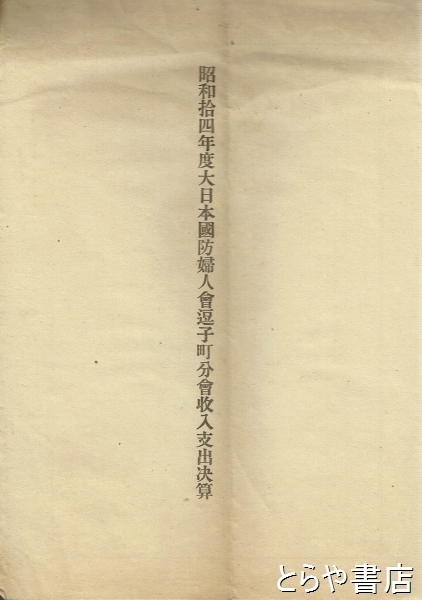 昭和拾四年度大日本國防婦人會逗子町分會收入支出決算
とらや書店